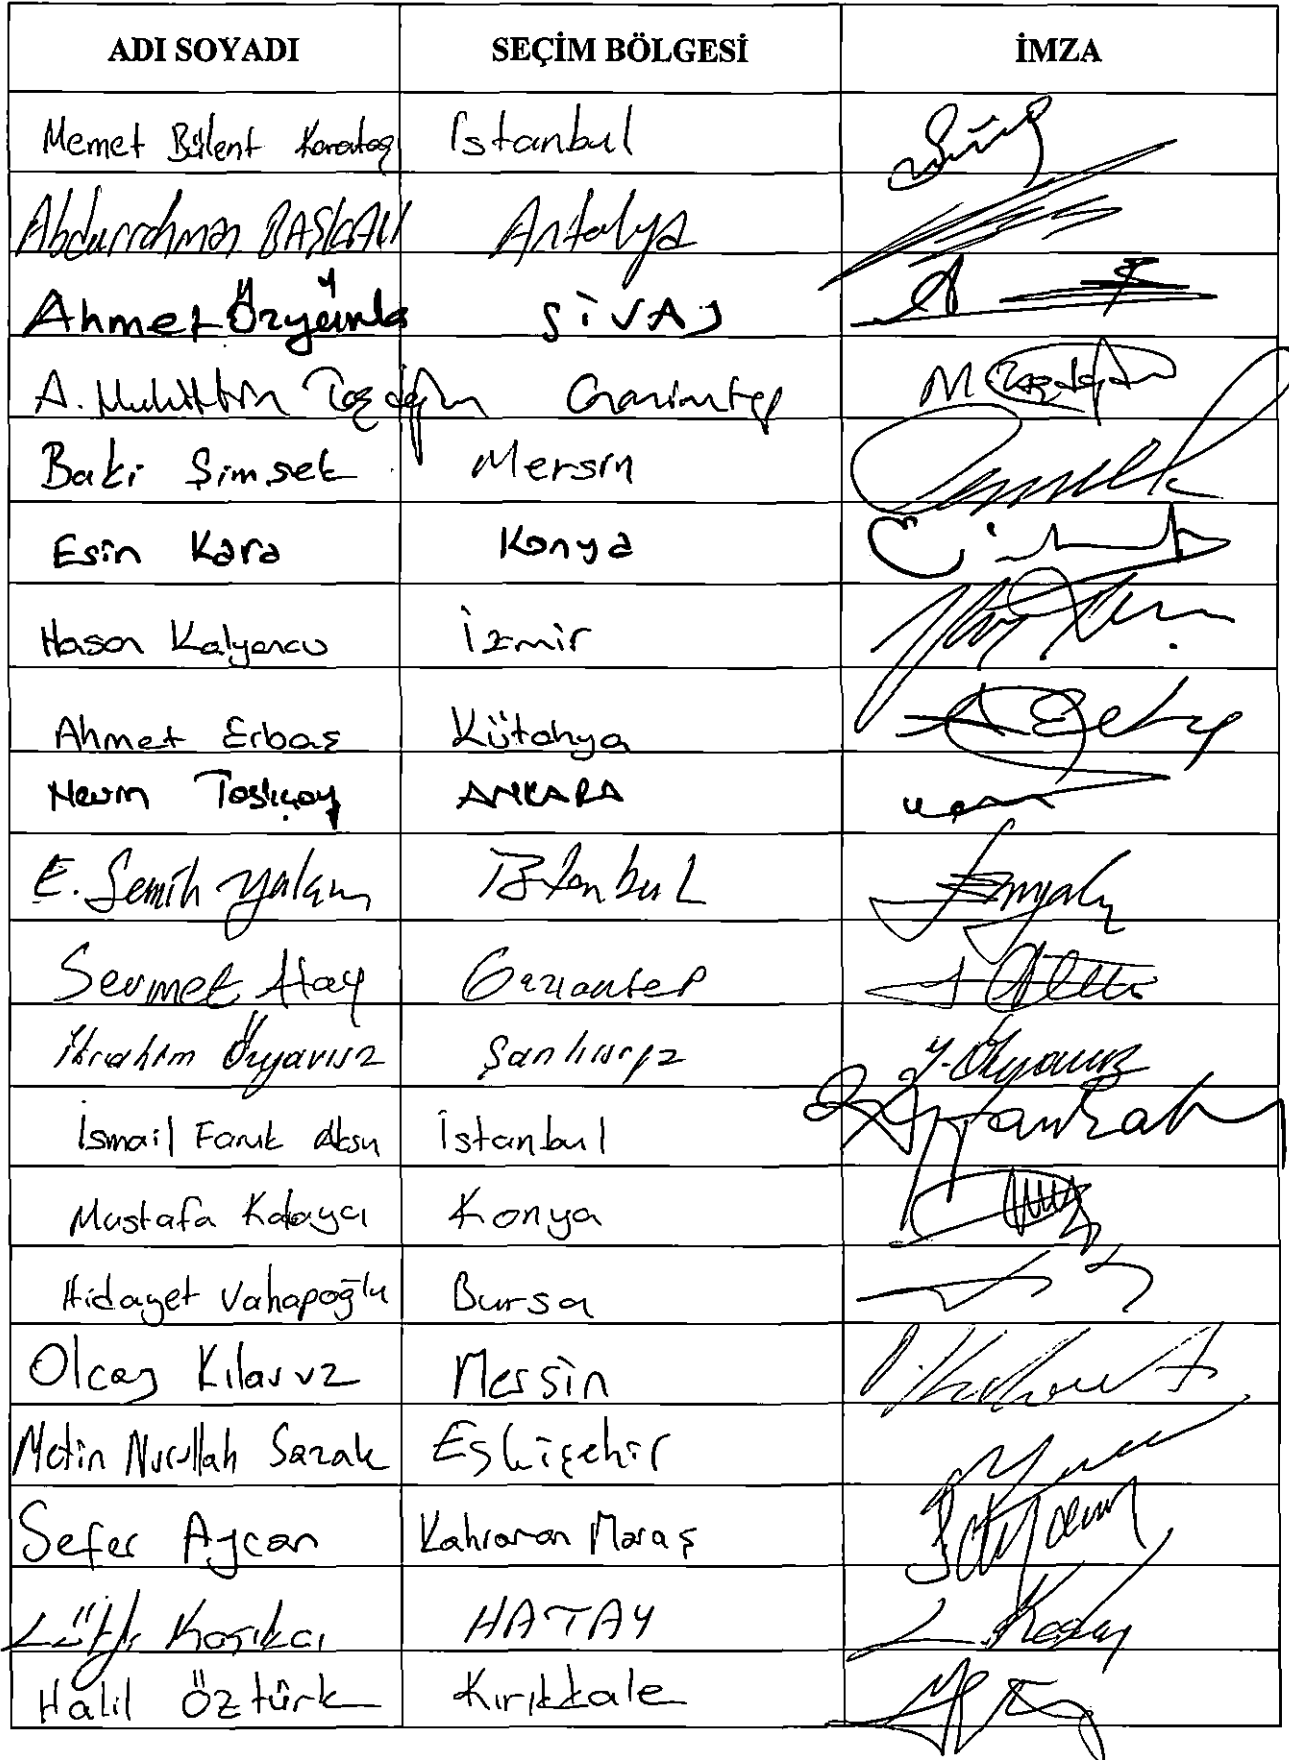 ADI SOYADI SEÇİM BÖLGESİ İMZA
Memet Bülent Karataş İstanbul
Abdurrahman BAŞKAN Antalya
Ahmet Özyürek SİVAS
A. Muhittin Taşdoğan Gaziantep
Baki Şimşek Mersin
Esin Kara Konya
Hasan Kalyoncu İzmir
Ahmet Erbaş Kütahya
Nevin Taşlıçay ANKARA
E. Semih Yalçın İstanbul
Sermet Atay Gaziantep
İbrahim Özyavuz Şanlıurfa İ. Özyavuz
İsmail Faruk Aksu İstanbul
Mustafa Kalaycı Konya
Hidayet Vahapoğlu Bursa
Olcay Kılavuz Mersin
Metin Nurullah Sazak Eskişehir
Sefer Aycan Kahraman Maraş
Lütfi Kaşıkçı HATAY
Halil Öztürk Kırıkkale